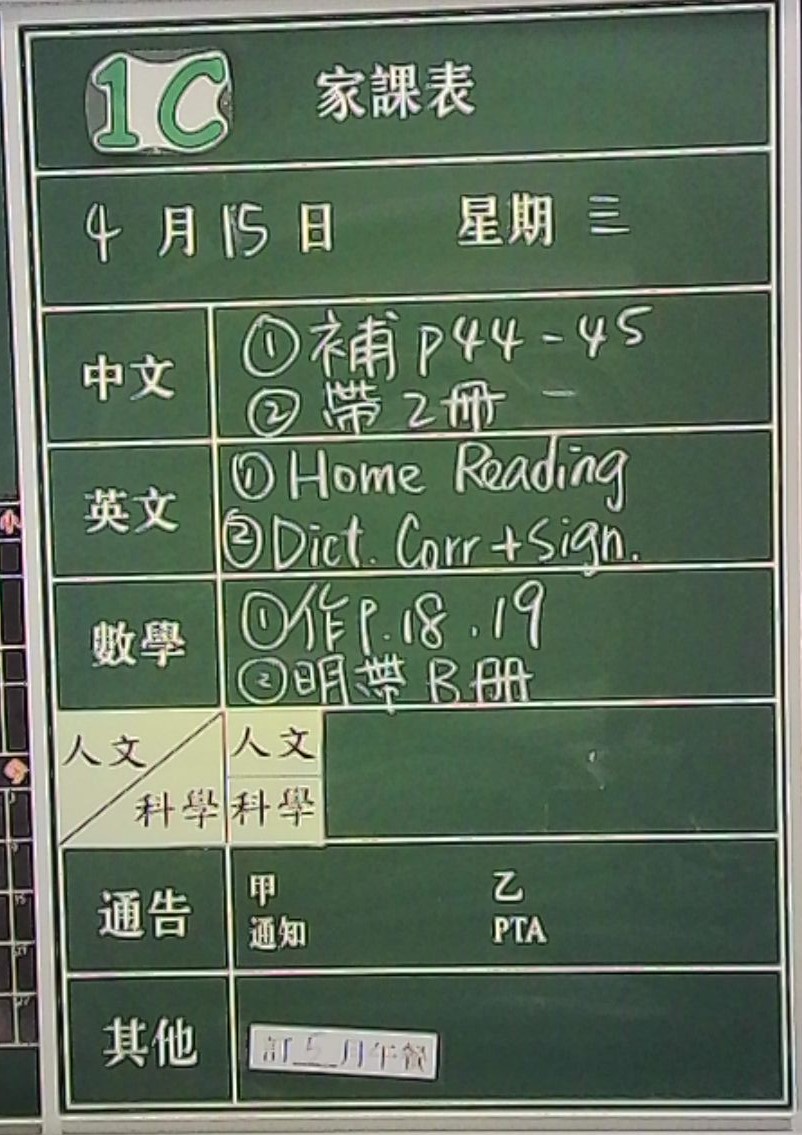 1C 家課表
4月15日 星期三
中文
①補 P44-45
②帶2冊
英文
①Home Reading
②Dict. Corr+Sign.
數學
①作P.18.19
②明帶B冊
人文 人文
科學 科學
通告
甲 乙
通知 PTA
其他
訂5月午餐